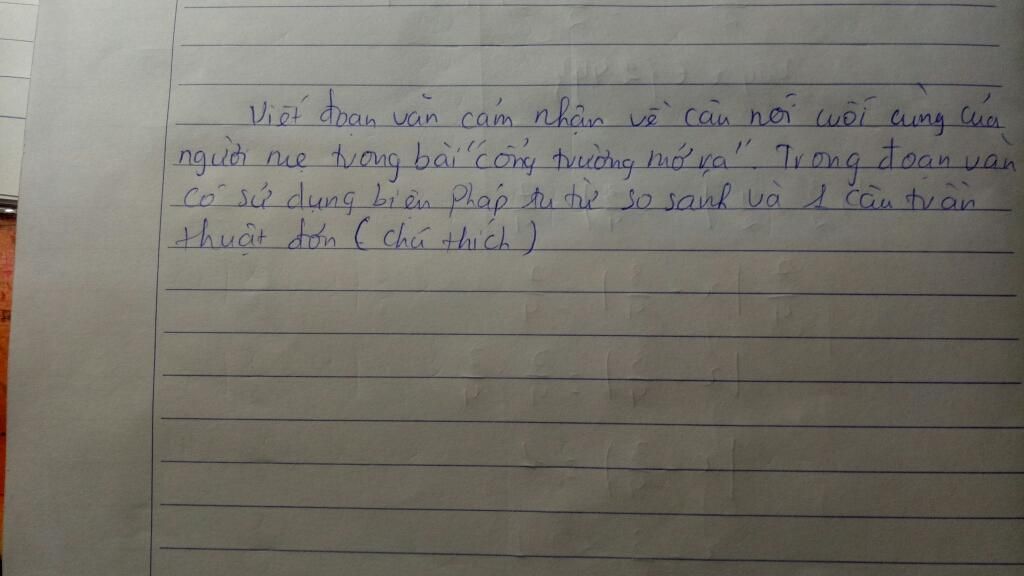 Viết đoạn văn cảm nhận về câu nói cuối cùng của
người mẹ trong bài "cổng trường mở ra". Trong đoạn văn
có sử dụng biện pháp tu từ so sanh và 1 câu trần
thuật đơn (chú thích)